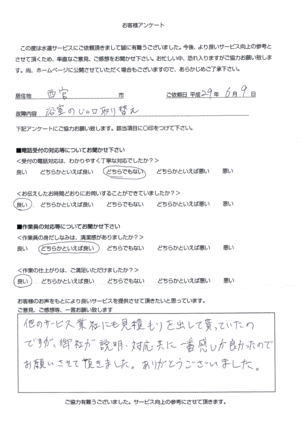 お客様アンケート
この度は水道サービスにご依頼頂きまして誠に有難うございました。今後、より良いサービス向上の参考と
させて頂くため、率直なご意見、ご感想をお聞かせ下さい。お忙しい中、恐れ入りますがご協力お願い致しま
す。尚、ホームページに公開させていただく場合もございますので、あらかじめご了承下さい。
居住地 西宮 市 ご依頼日 平成29年6月9日
故障内容 浴室の蛇口取り替え
下記アンケートにご協力お願い致します。該当項目に〇印をつけて下さい。
■電話受付の対応等についてお聞かせ下さい
<受付の対応は、わかりやすく丁寧な対応でしたか?>
良い どちらかといえば良い どちらでもない どちらかといえば悪い 悪い
<お伝えしたお時間どおりにお伺いすることができていましたか?>
良い どちらかといえば良い どちらでもない どちらかといえば悪い 悪い
■作業員の対応等についてお聞かせ下さい
<作業員の身だしなみは、清潔感がありましたか?>
良い どちらかといえば良い どちらでもない どちらかといえば悪い 悪い
<作業の仕上がりは、ご満足いただけましたか?>
良い どちらかといえば良い どちらでもない どちらかといえば悪い 悪い
お客様のお声をもとにより良いサービスを提供させて頂きたいと思っています。
ご意見、ご感想等、一言お願い致します
他のサービス業社にも見積もりを出して貰っていたの
ですが、御社が説明・対応共に一番感じが良かったので
お願いさせて頂きました。ありがとうございました。
ご協力有難うございました。サービス向上の参考にさせて頂きます。